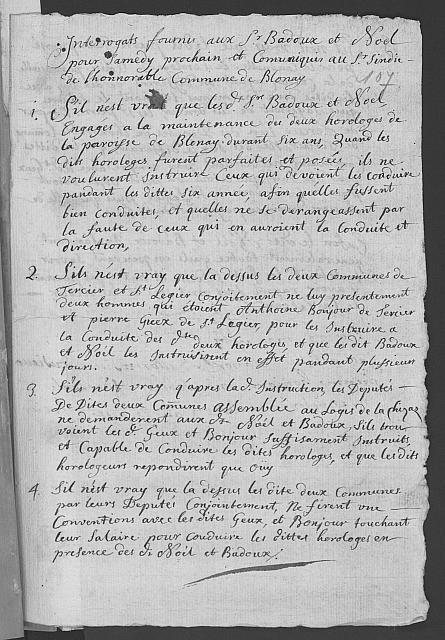 Interrogats fournis aux Sr Badoux et Noel
pour Samedy prochain et Comuniqués au Sr Sindic
de lhonnorable Commune de Blonay
107
1. Sil nest vray que les d. Srs Badoux et Noel
Engages a la maintenance des deux horologes de
la paroysse de Blonay durant six ans, Quand les
dits horologes furent parfaites et posées, ils ne
voulurent Instruire Ceux qui devoient les conduire
pandant les dittes six année, afin quelles fussent
bien conduites, et quelles ne se derangeassent par
la faute de ceux qui en auroient la conduite et
direction,
2. Sils nest vray que la dessus les deux Communes de
Tercier et St Legier Conjoitement ne luy presentement
deux hommes qui étoient Anthoine Bonjor de Tercier
et pierre Geux de St Legier, pour les Instruire a
la Conduite des dites deux horologes, et que les dit Badoux
et Noil les Instruisirent en effet pandant plusieur
jours.
3. Sils nést vray q'apres lad. Instruction les Deputés
De Dites deux Comunes Assemblée au Logis de la
ne demanderent aux dt Noil et Badoux, Sils trou
voient les d. Geux et Bonjor Suffisament Instruits
et Capable de Conduire les dites horologes, et que les dits
horologeurs repondirent que Ouy
4. Sil nést vray que la dessus les dite deux Communes
par leurs Deputés Conjointement, Ne firent une
Conventions avec les dites Geux, et Bonjor touchant
leur Salaire pour Conduire les dittes horologes en
presence des di Noil et Badoux.